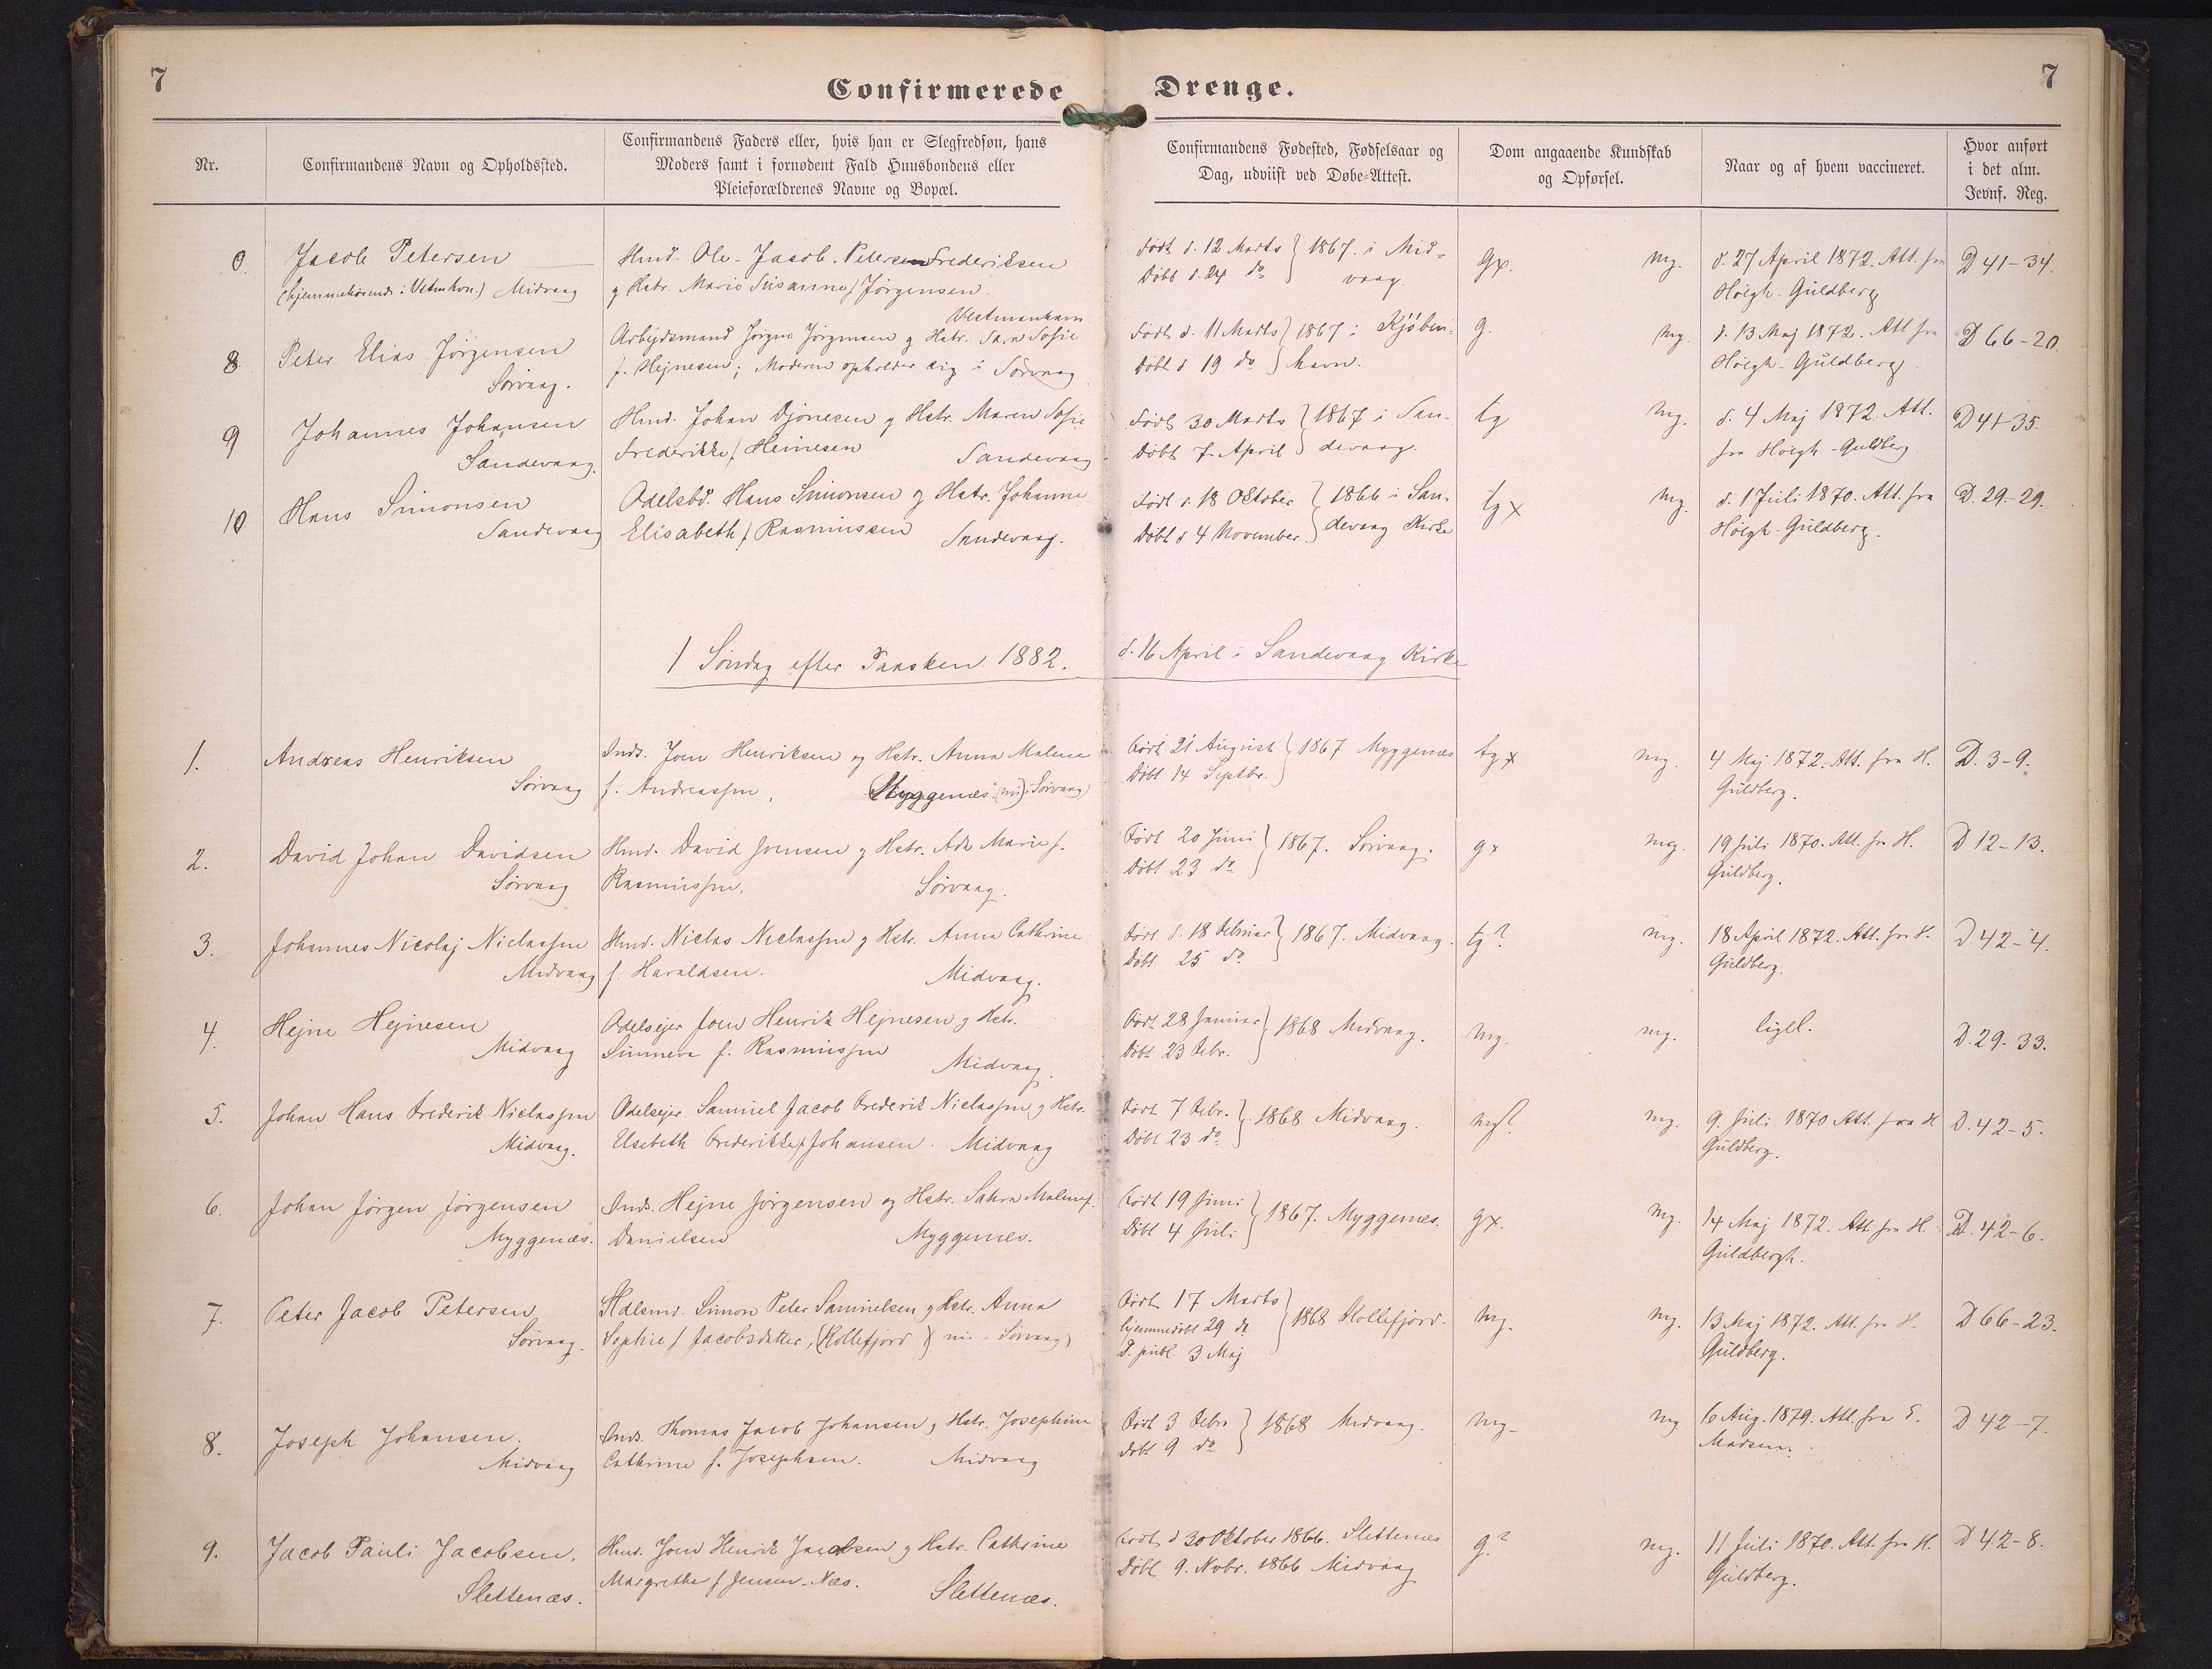 7
Confirmerede Drenge.
7
Nr.
Confirmandens Navn og Opholdssted.
Confirmandens Faders eller, hvis han er Slegfredsøn, hans
Moders samt i fornødent Fald Huusbondens eller
Pleieforældrenes Navne og Bopæl.
Confirmandens Fødested, Fødselsaar og
Dag, udviist ved Døbe-Attest.
Dom angaaende Kundskab
og Opførsel.
Naar og af hvem vaccineret.
Hvor anført
i det alm.
Jevnf. Reg.
0. Jacob Petersen
(hjemmehörende i Vstmhvn.) Midvaag
Hmd. Ole Jacob Petersen Frederiksen
g Hstr. Marie Susanne f. Jörgensen
Vestmanhavn
Födt d. 12 Marts } 1867 i Mid-
Döbt d. 24 do } vaag.
gx. mg.
d. 27 April 1872. Att. fra
Höegh-Guldberg
D 41-34.
8. Peter Elias Jörgensen
Sörvaag.
Arbejdsmand Jörgen Jörgensen g Hstr. Sara Sofie
f. Hejnesen; Moderen opholder sig i Sörvaag
Födt d. 11 Marts } 1867 i Kjöben-
Döbt d 19 do } havn.
g. mg.
d. 13 Maj 1872. Att fra
Höegh-Guldberg
D 66-20.
9 Johannes Johansen
Sandevaag.
Hmd. Johan Djonesen g Hstr. Maren Sofie
Frederikke f. Heinesen Sandevaag
Födt 30 Marts } 1867 i San-
Döbt 7 April } devaag.
tg mg.
d. 4 Maj 1872. Att.
fra Höegh-Guldberg
D 41-35.
10 Hans Simonsen
Sandevaag
Odelsbd. Hans Simonsen g Hstr. Johanne
Elisabeth f. Rasmussen Sandevaag.
Födt d. 18 Oktober } 1866 i San-
Döbt d 4 November } devaag Kirke
tgx mg.
d. 1 Juli 1870. Att. fra
Höegh-Guldberg.
D. 29-29.
1 Söndag efter Paasken 1882. d. 16 April i Sandevaag Kirke
1. Andreas Henriksen
Sörvaag
Inds. Joen Henriksen og Hstr. Anna Malene
f. Andreassen, Myggenæs (nu i Sörvaag)
Födt 21 August } 1867 Myggenæs
Döbt 14 Septbr. }
tgx mg.
4 Maj 1872. Att. fra H.
Guldberg.
D. 3-9.
2. David Johan Davidsen
Sörvaag
Hmd. David Joensen g Hstr. Ada Marie f.
Rasmussen, Sörvaag.
Födt 20 Juni } 1867. Sörvaag.
Döbt 23 do }
gx mg.
19 Juli 1870. Att. fra H.
Guldberg.
D 12-13.
3. Johannes Nicolaj Niclassen
Midvaag
Hmd. Niclas Niclassen g Hstr. Anna Cathrine
f. Haraldsen. Midvaag.
Födt d. 18 Februar } 1867. Midvaag.
Döbt 25 do }
tg? mg.
18 April 1872. Att. fr. H.
Guldberg.
D 42-4.
4. Hejne Hejnesen
Midvaag
Odelsejer Joen Henrik Hejnesen g Hstr.
Sunneva f. Rasmussen Midvaag.
Födt 28 Januar } 1868 Midvaag.
Döbt 23 Febr. }
mg. mg.
ligel.
D. 29-33.
5. Johan Hans Frederik Niclassen
Midvaag.
Odelsejer Samuel Jacob Frederik Niclassen g Hstr.
Elsebeth Frederikke f. Johansen. Midvaag
Födt 7 Febr. } 1868 Midvaag.
Döbt 23 do }
mg? mg.
9. Juli 1870 Att. fra H
Guldberg.
D. 42-5.
6. Johan Jörgen Jörgensen
Myggenæs.
Inds. Hejne Jörgensen og Hstr. Sahra Malene f.
Danielsen Myggenæs.
Födt 19 Juni } 1867. Myggenæs.
Döbt 4 Juli }
gx. mg.
14 Maj 1872. Att. fra H
Guldbergh.
D. 42-6.
7. Peter Jacob Petersen
Sörvaag.
Hdlsmd. Simon Peter Samuelsen g Hstr. Anna
Sophie f Jacobsdatter, (Kollefjord) nu i Sörvaag)
Födt 17 Marts } 1868 Kollefjord.
hjemmedöbt 29 do
D. publ. 3 Maj
mg. mg.
13 Maj 1872. Att. fra H.
Guldberg.
D 66-23.
8. Joseph Johansen.
Midvaag
Inds. Thomas Jacob Johansen g Hstr. Josephine
Cathrine f. Josephsen. Midvaag
Födt 3 Febr } 1868 Midvaag.
Döbt 9 do }
mg- mg
16 Aug. 1879. Att. fra E.
Madsen.
D 42-7.
9. Jacob Pauli Jacobsen.
Slettenæs.
Hmd. Joen Henrik Jacobsen g Hstr. Cathrine
Margrethe f Jensen-Næs. Slettenæs.
Födt d 30 Oktober 1866. Slettenæs
Döbt 9. Novbr. 1866 Midvaag
g? mg.
11 Juli 1870. Att. fra H.
Guldberg.
D 42-8.